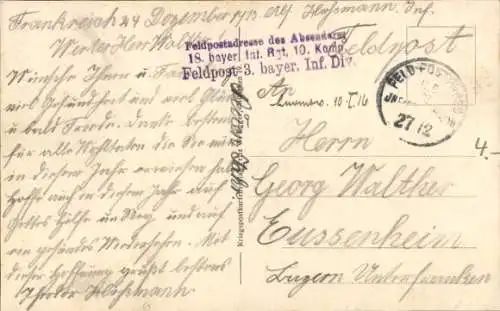 Frankreich 24 Dezember 1915
Werter Herr Walther
Feldpostadresse des Absenders:
18. bayer. Inf. Rgt. 10. Komp.
Feldpost 3. bayer. Inf. Div.
Feldpost
Wünsche Ihnen u. Frau
viel Gesundheit und viel Glück
u. bald Friede. Danke bestens
für alle die Sie mir
in diesem Jahr erwiesen
Hoffe auch in diesem Jahr auf
Gottes Hilfe und auf
ein gesundes Wiedersehen. Mit
dieser Hoffnung grüßt bestens
Theodor
An
10. I. 16
Herrn
Georg Walther
Eussenheim
Bayern Unterfranken
27 12
4.-